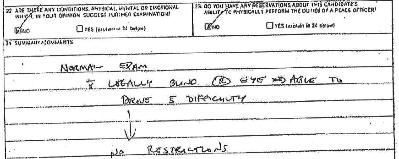 22 ARE THERE ANY CONDITIONS, PHYSICAL, MENTAL OR EMOTIONAL
WHICH, IN YOUR OPINION, SUGGEST FURTHER EXAMINATION?
NO YES (explain in 24 below)
23. DO YOU HAVE ANY RESERVATIONS ABOUT THIS CANDIDATE'S
ABILITY TO PHYSICALLY PERFORM THE DUTIES OF A PEACE OFFICER?
NO YES (explain in 24 below)
24 SUMMARY/COMMENTS
NORMAL EXAM
LEGALLY BLIND (R) EYE ABLE TO
DRIVE s̄ DIFFICULTY
↓
NO RESTRICTIONS